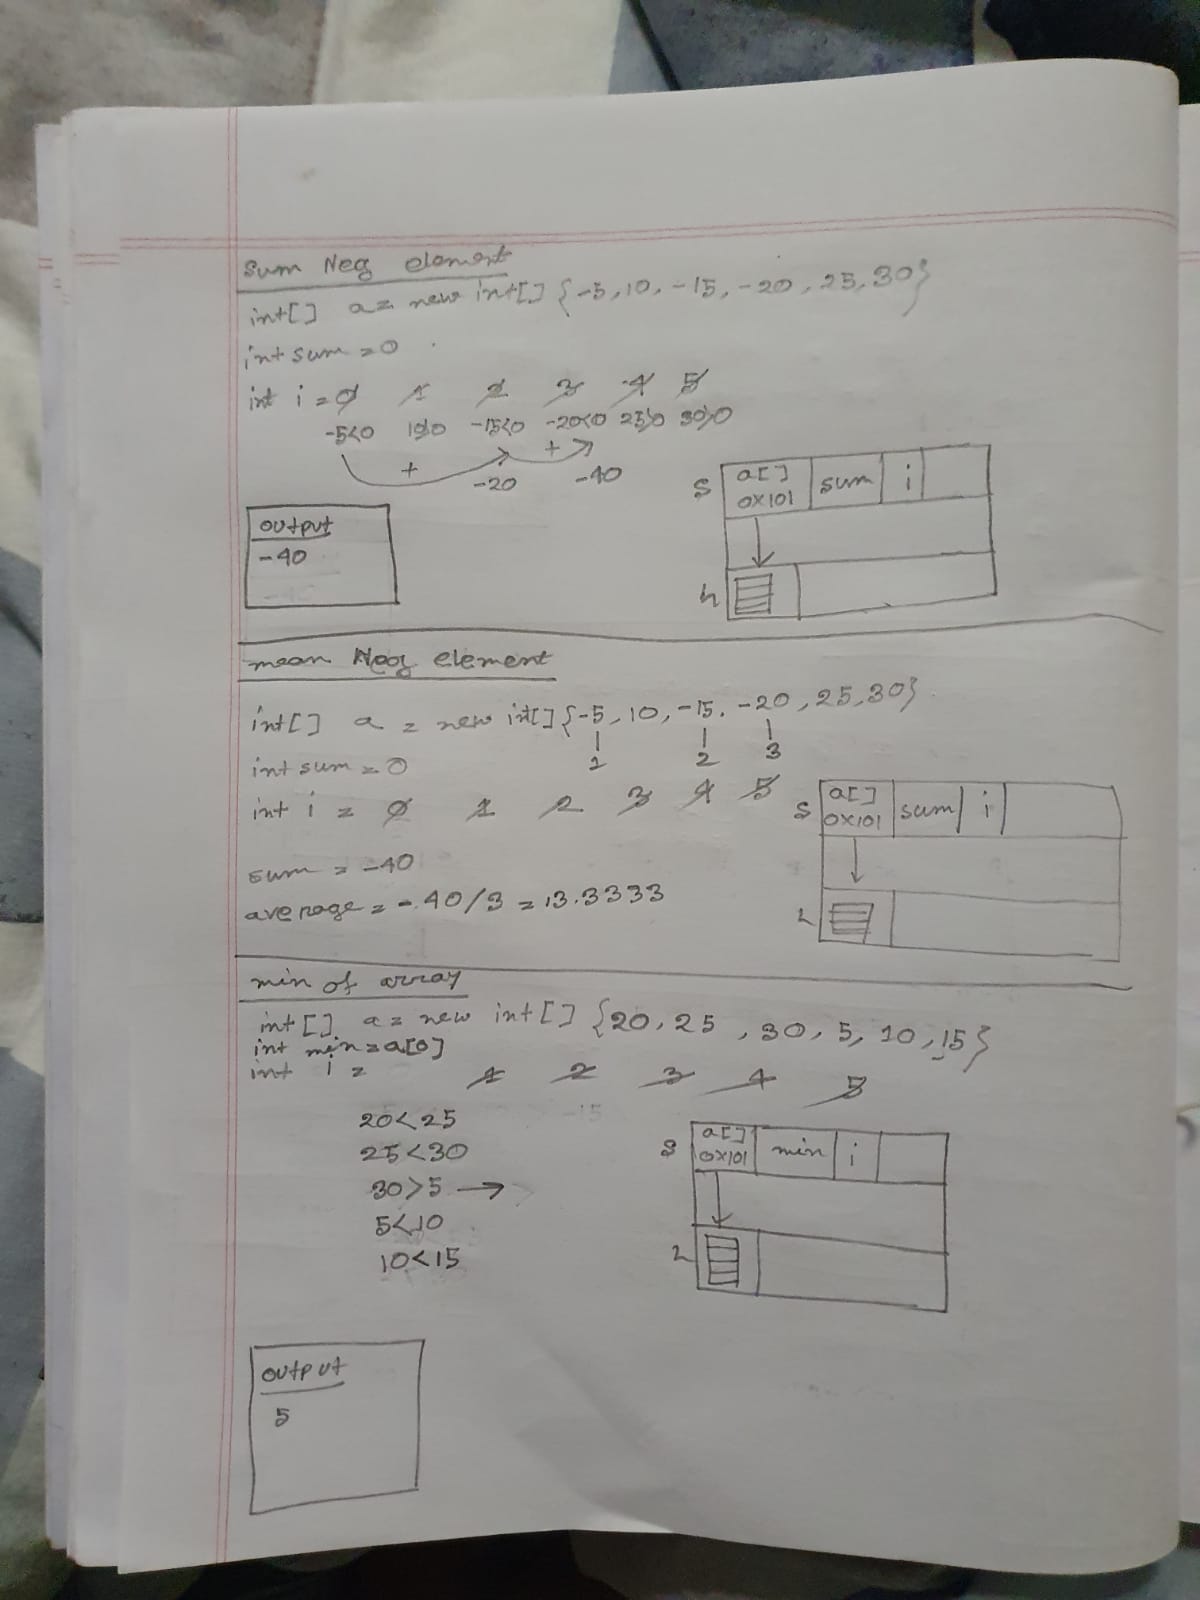 Sum Neg element
int[] a = new int[] {-5, 10, -15, -20, 25, 30}
int sum = 0
int i = 0 1 2 3 4 5
-5<0 10>0 -15<0 -20<0 25>0 30>0
+ +
-20 -40
output
-40
s a[] sum i
0x101
h
mean Neg element
int[] a = new int[] {-5, 10, -15, -20, 25, 30}
1 2 3
int sum = 0
int i = 0 1 2 3 4 5
sum = -40
average = -40/3 = 13.3333
s a[] sum i
0x101
h
min of array
int[] a = new int[] {20, 25, 30, 5, 10, 15}
int min = a[0]
int i = 1 2 3 4 5
20<25
25<30
30>5 →
5<10
10<15
s a[] min i
0x101
h
output
5